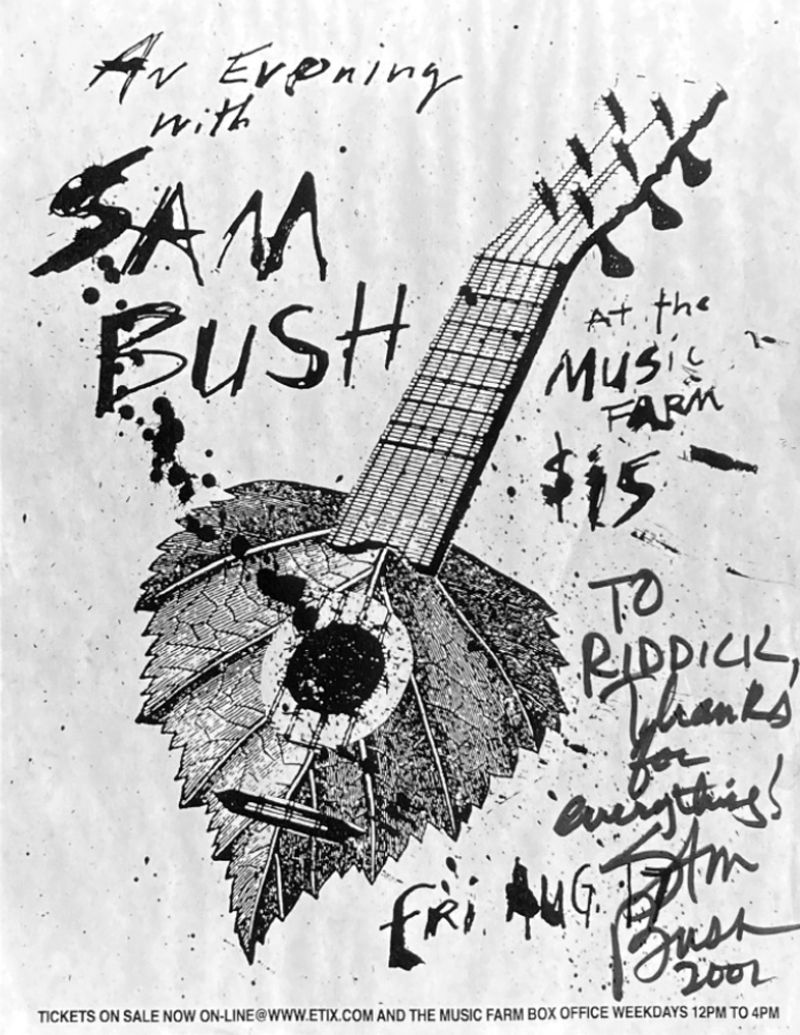 An Evening
with
SAM
BUSH
At the
MUSIC
FARM
$15
TO
RIDDICK,
Thanks
for
everything!
Sam
Bush
2001
FRI. AUG.
TICKETS ON SALE NOW ON-LINE@WWW.ETIX.COM AND THE MUSIC FARM BOX OFFICE WEEKDAYS 12PM TO 4PM